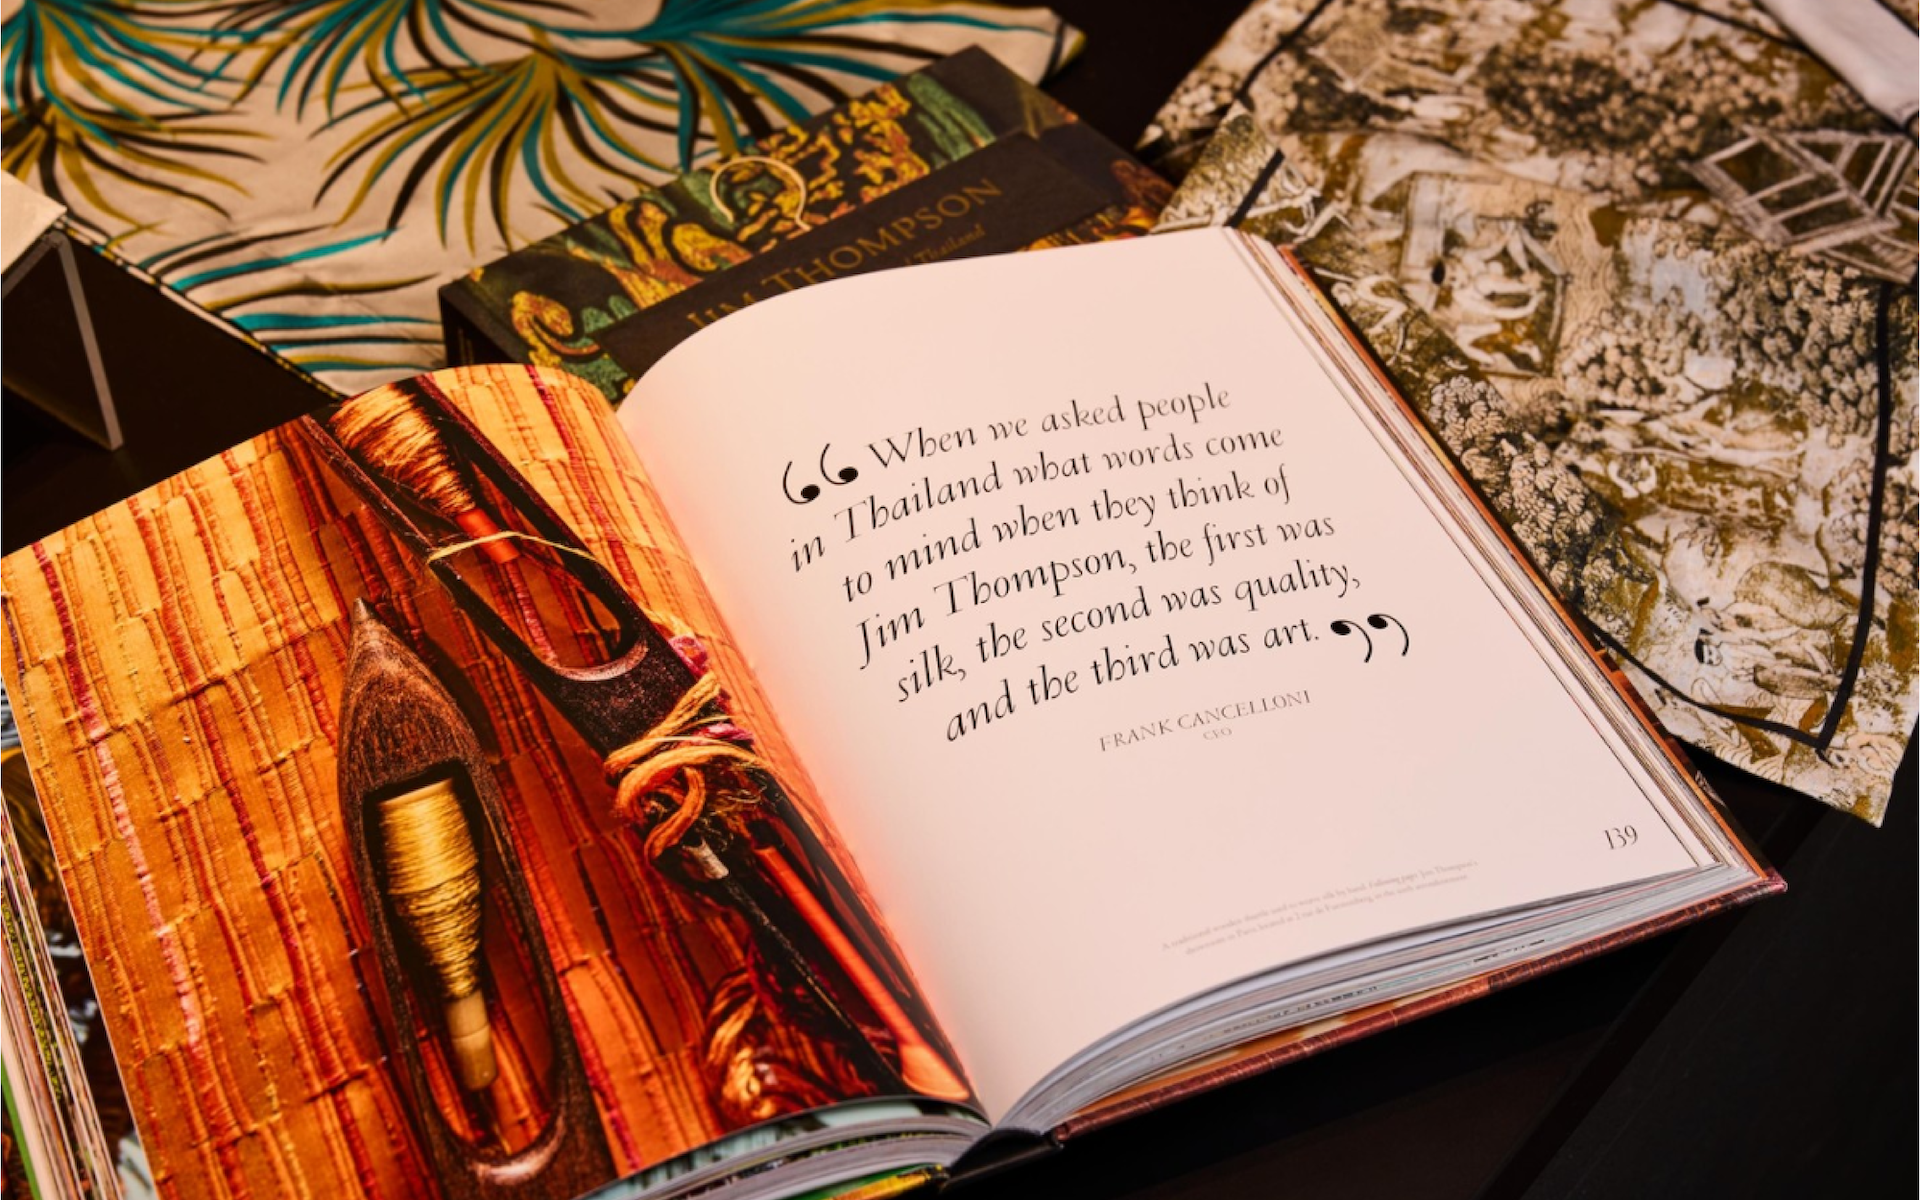 JIM THOMPSON
Thailand
“When we asked people
in Thailand what words come
to mind when they think of
Jim Thompson, the first was
silk, the second was quality,
and the third was art.”
FRANK CANCELLONI
CEO
139